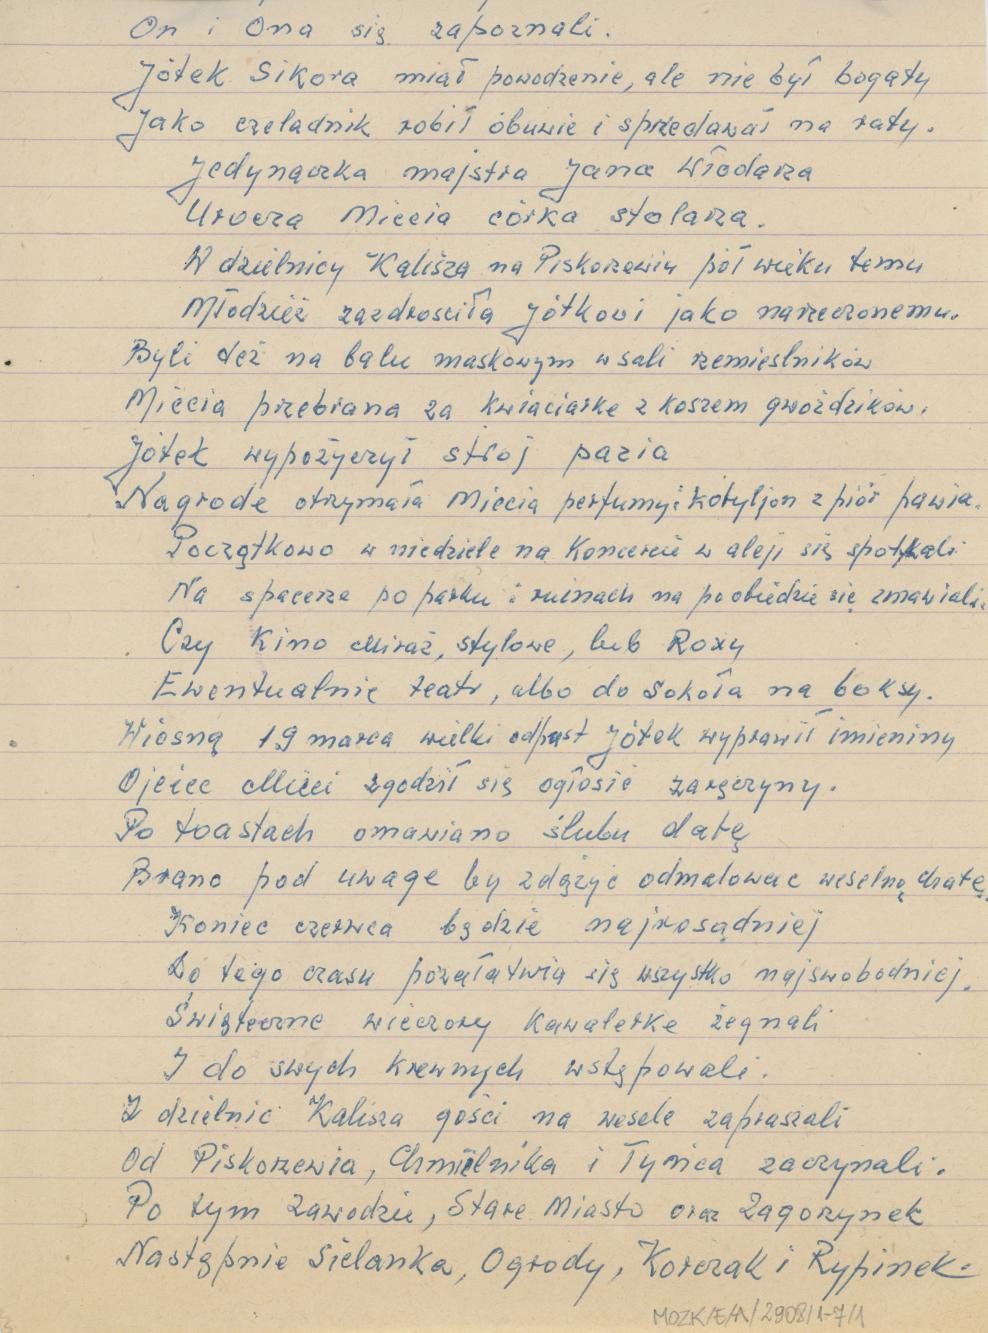 On i Ona się zapoznali.
Jótek Sikora miał powodzenie, ale nie był bogaty
Jako czeladnik robił obuwie i sprzedawał na raty.
Jedynaczka majstra Jana Włodarza
Urocza Miecia córka stolarza.
W dzielnicy Kalisza na Piskorzewiu pół wieku temu
Młodzież zazdrościła Jótkowi jako narzeczonemu.
Byli też na balu maskowym w sali rzemieślników
Miecia przebrana za kwiaciarke z koszem gwoździków.
Jótek wypożyczył strój pazia
Nagrode otrzymała Miecia perfumy i kotyljon z piór pawia.
Początkowo w niedziele na koncercie w aleji się spotykali
Na spacerze po parku i ruinach na poobiedzie się zmawiali.
Czy Kino Miraż, stylowe, lub Roxy
Ewentualnie teatr, albo do Sokoła na boksy.
Wiosną 19 marca wielki odpust Jótek wyprawił imieniny
Ojciec Mieci zgodził się ogłosić zaręczyny.
Po toastach omawiano ślubu datę
Brano pod uwage by zdążyć odmalować weselną chatę.
Koniec czerwca będzie najrosądniej
Do tego czasu pozałatwia się wszystko najswobodniej.
Świąteczne wieczory kawalerke żegnali
I do swych krewnych wstępowali.
Z dzielnic Kalisza gości na wesele zapraszali
Od Piskorzewia, Chmielnika i Tyńca zaczynali.
Po tym Zawodzie, Stare Miasto oraz Zagorzynek
Następnie Sielanka, Ogrody, Korczak i Rypinek.
MOZK/E/A/2908/1-7/1